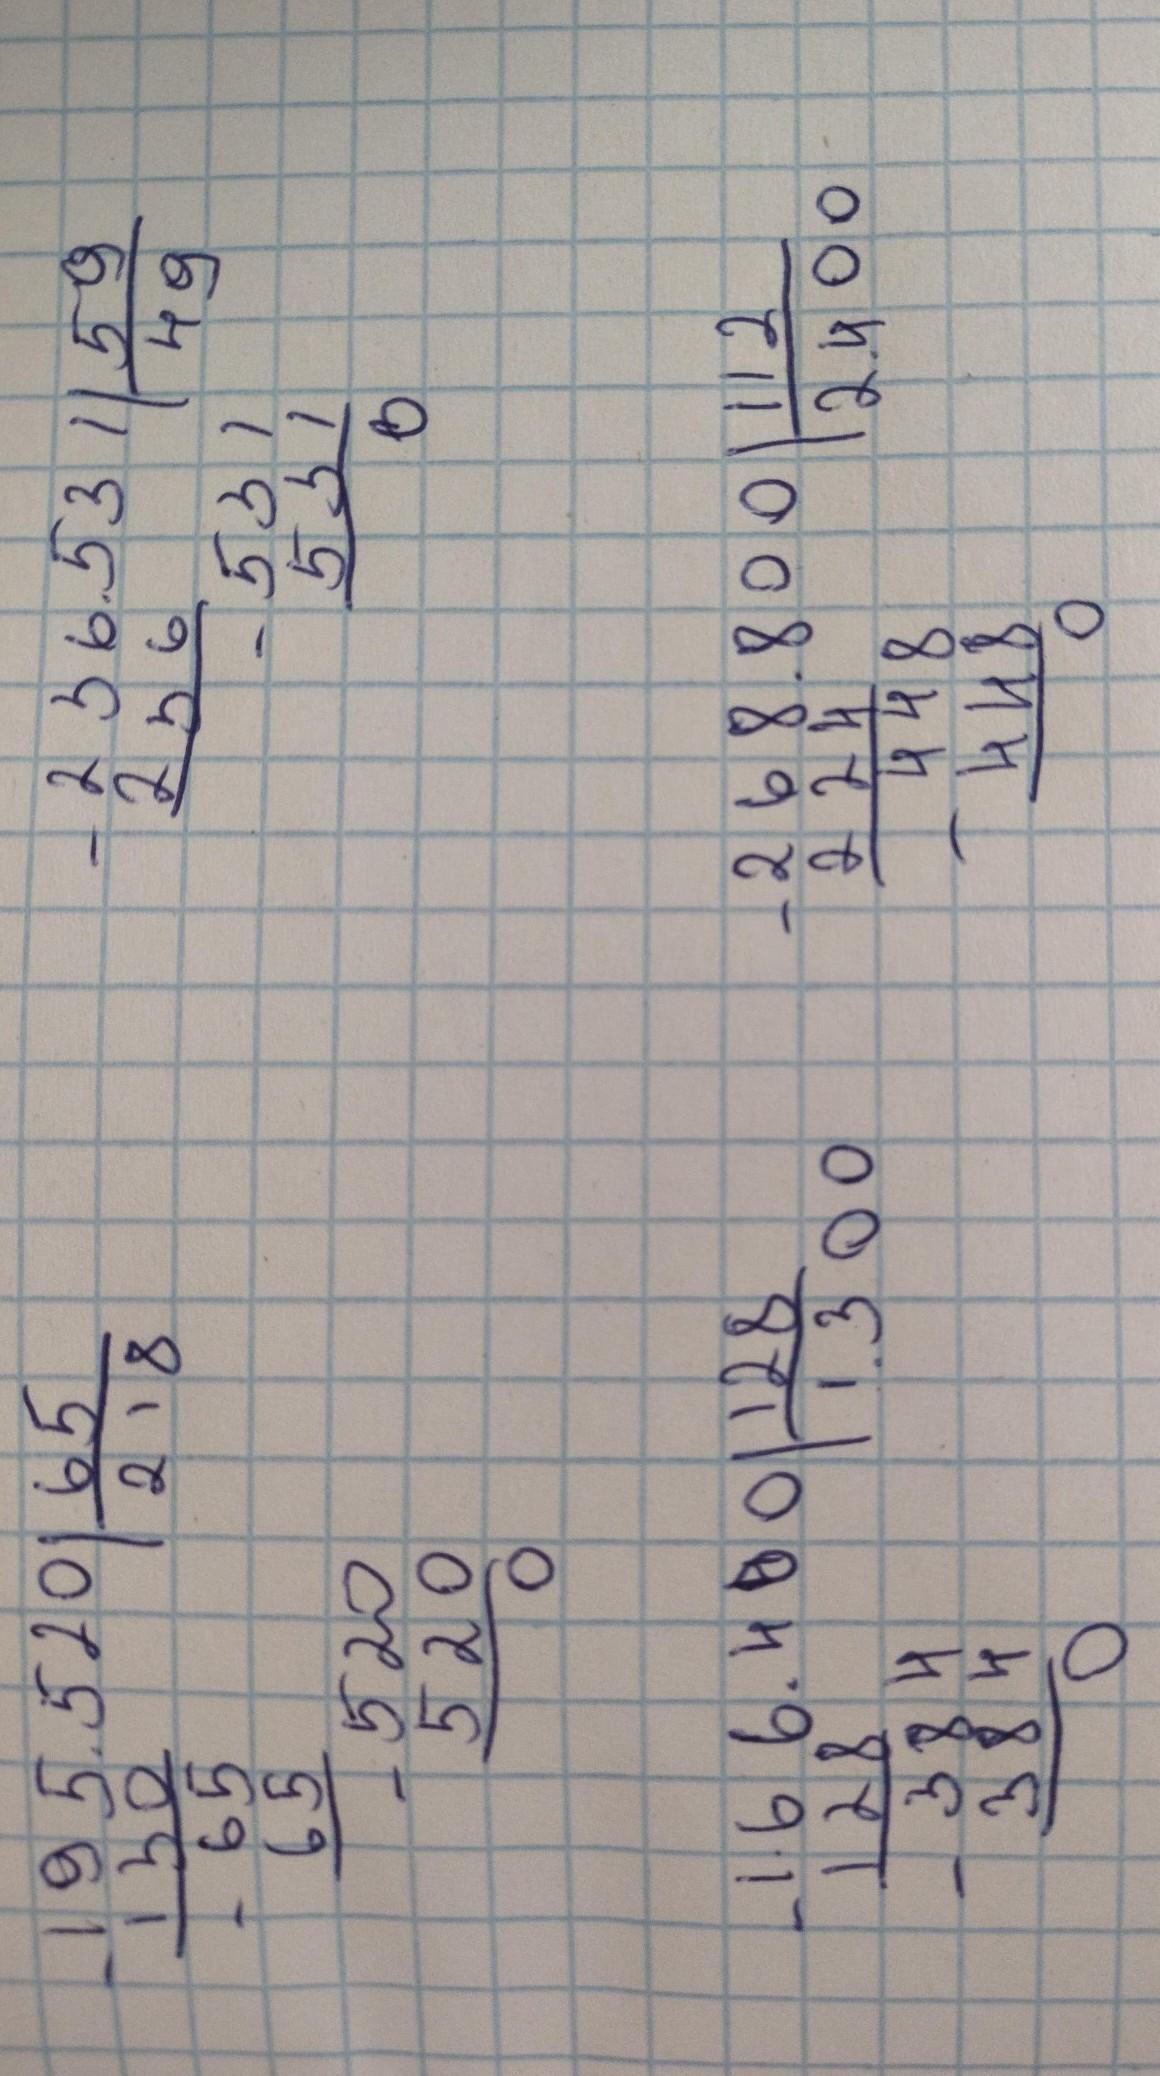 -195.520|65
130|218
-65
65
-520
520
0
-236.531|59
236|49
-531
531
0
-166.400|128
128|1.300
-384
384
0
-268.800|112
224|2.400
448
-448
0